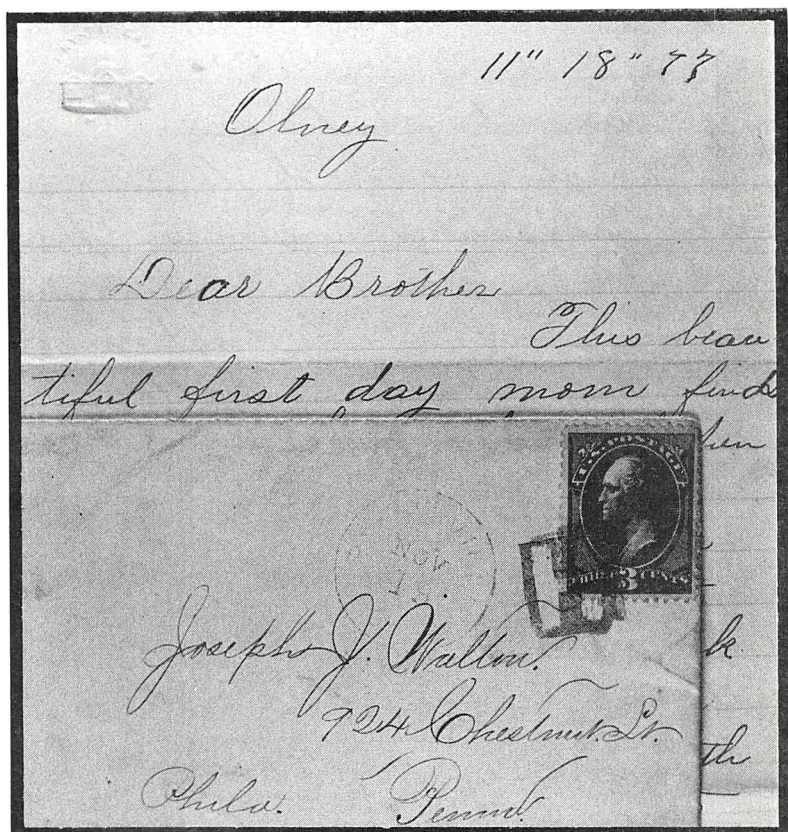 11" 18" 77
Olney
Dear Brother
This beau
tiful first day morn finds
hen
U.S. POSTAGE
THREE 3 CENTS
NOV
Joseph J. Walton.
k
924 Chestnut St.
th
Phila. Penna.